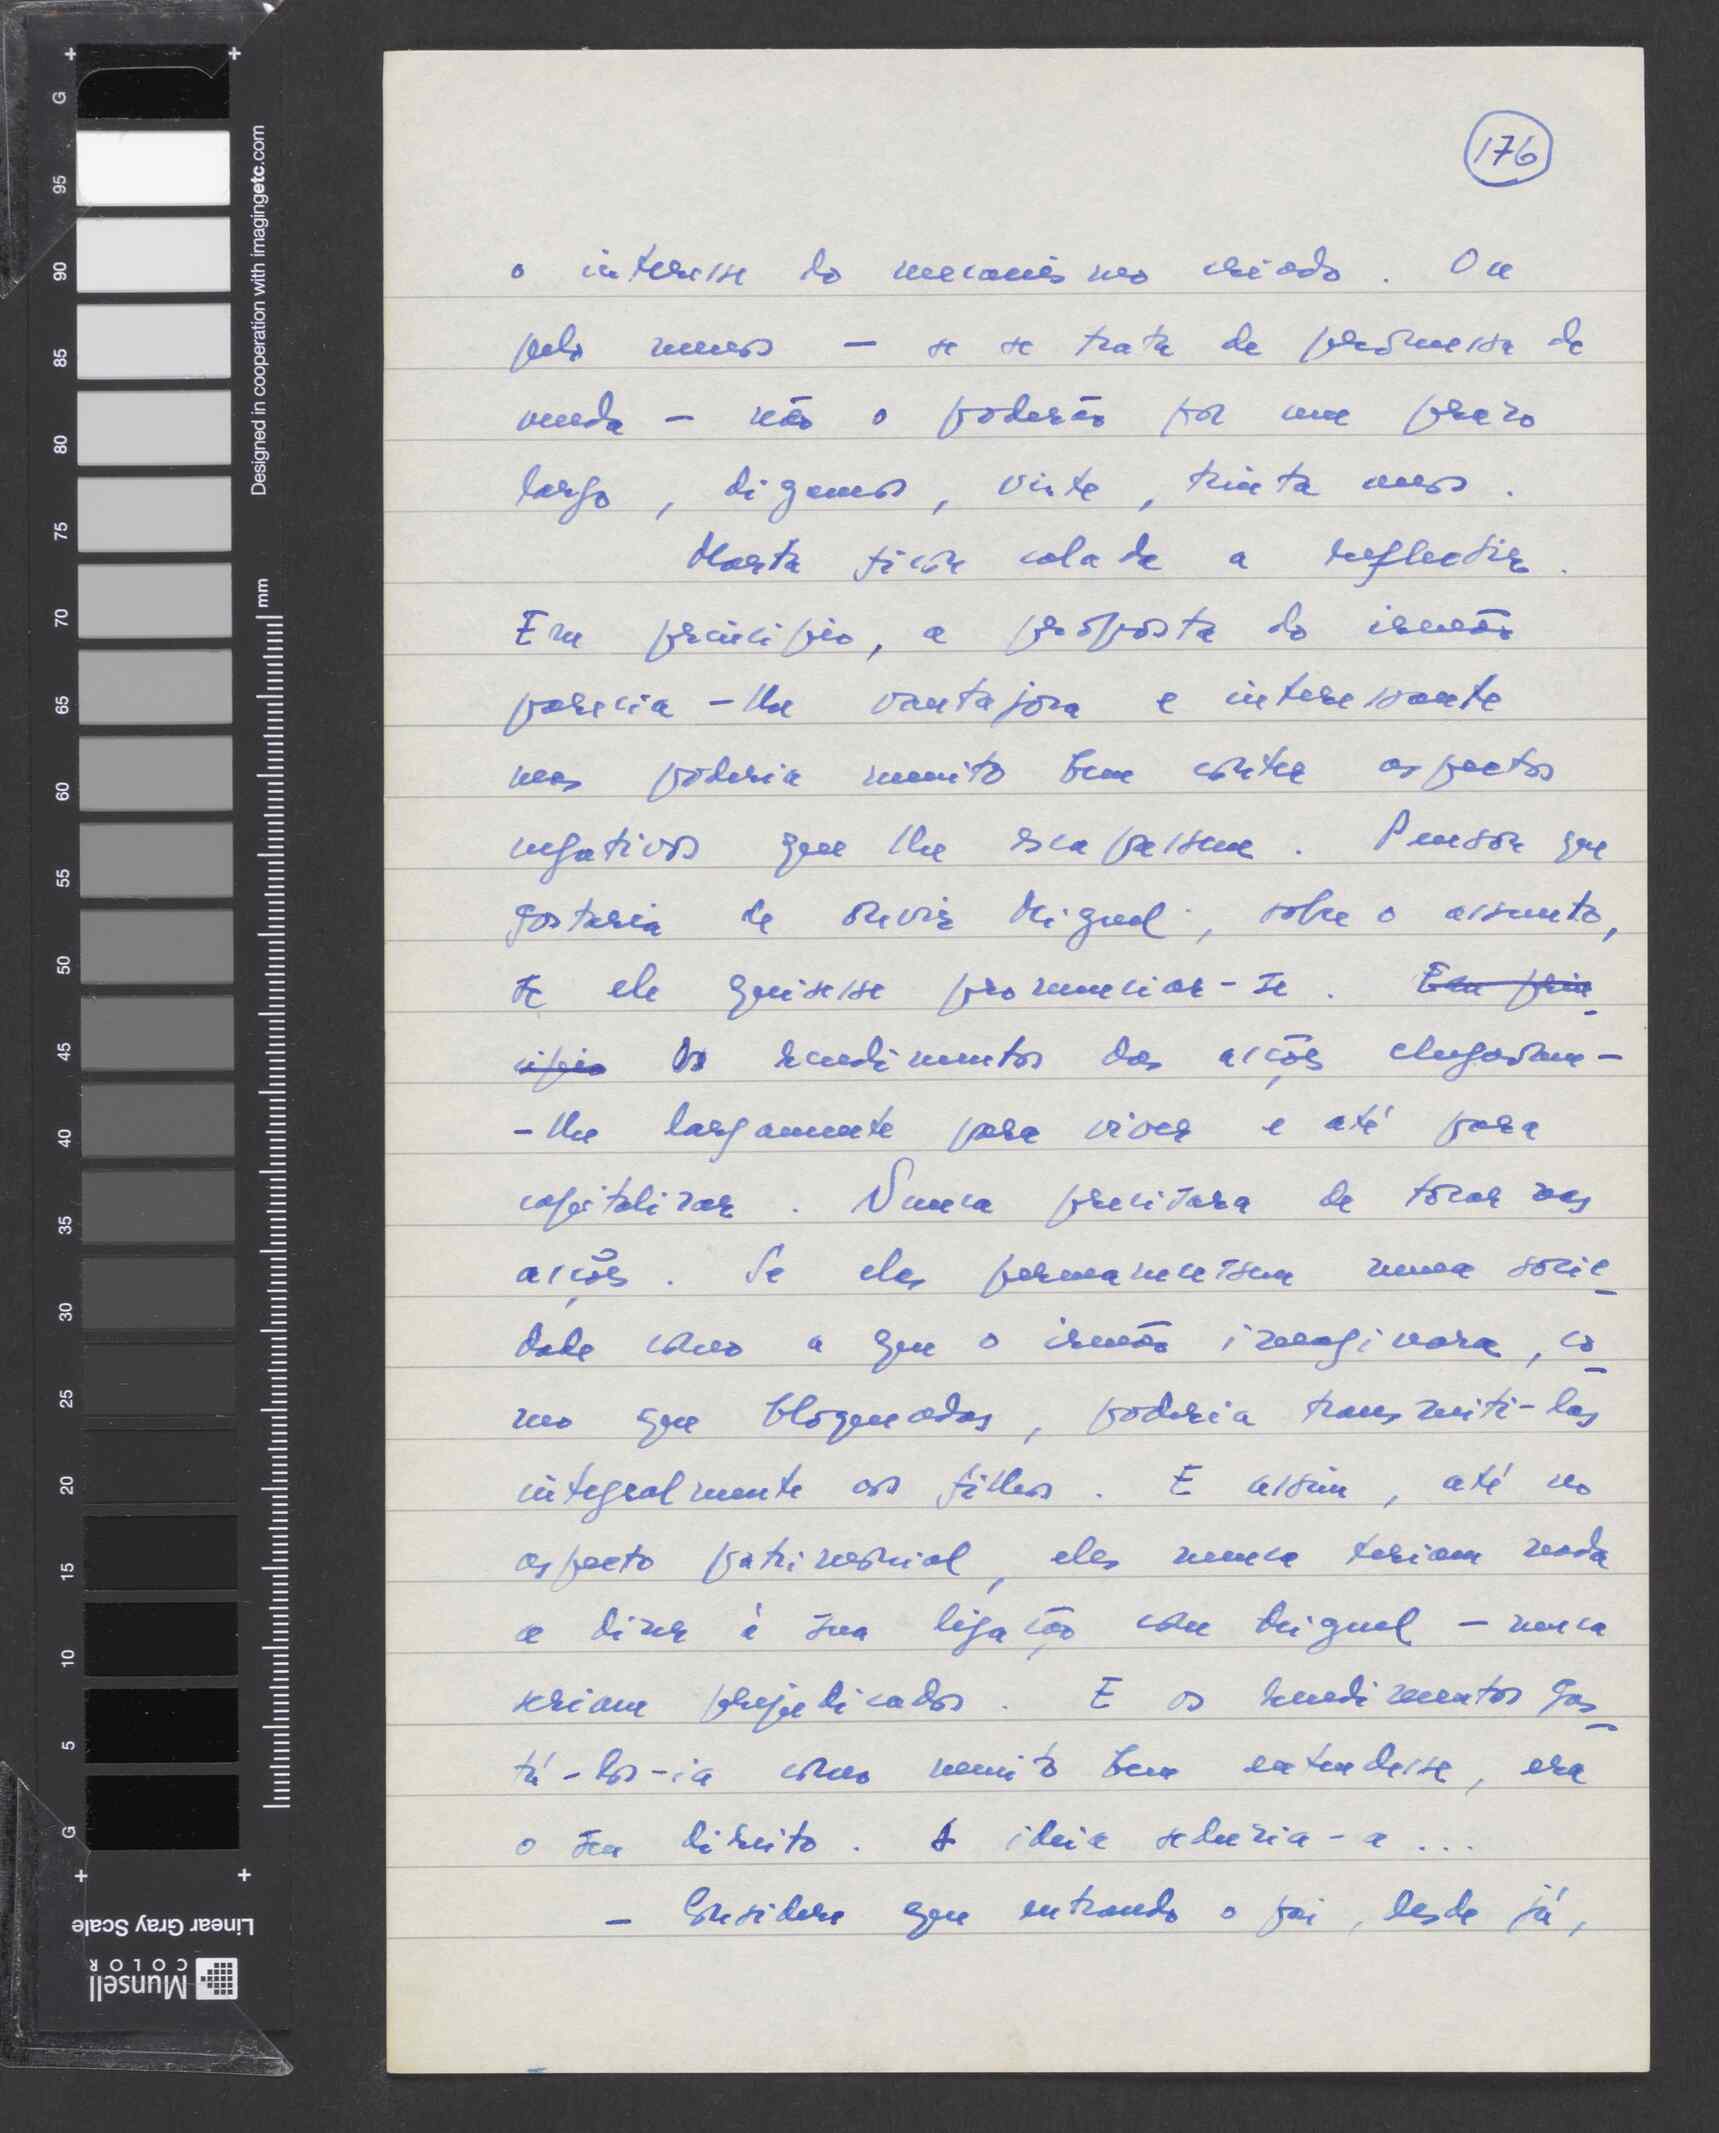 176
o interesse do mecanismo criado. Ou
pelo menos — se se trata de promessa de
venda — não o poderão por um prazo
largo, digamos, vinte, trinta anos.
Marta ficou calada a reflectir.
Em princípio, a proposta do irmão
parecia-lhe vantajosa e interessante
mas poderia muito bem conter aspectos
negativos que lhe escapassem. Pensou que
gostaria de ouvir Miguel, sobre o assunto,
se ele quisesse pronunciar-se. Em prin-
cípio Os rendimentos das acções chegavam-
-lhe largamente para viver e até para
capitalizar. Nunca precisara de tocar nas
acções. Se elas permanecessem numa socie-
dade como a que o irmão imaginara, co-
mo que bloqueadas, poderia transmiti-las
integralmente aos filhos. E assim, até no
aspecto patrimonial, eles nunca teriam nada
a dizer à sua ligação com Miguel — nunca
seriam prejudicados. E os rendimentos gas-
tá-los-ia como muito bem entendesse, era
o seu direito. A ideia seduzia-a...
— Considere que entrando o pai, desde já,
Designed in cooperation with imagingetc.com
mm
G
95
90
85
80
75
70
65
60
55
50
45
40
35
30
25
20
15
10
5
G
Linear Gray Scale
Munsell
COLOR